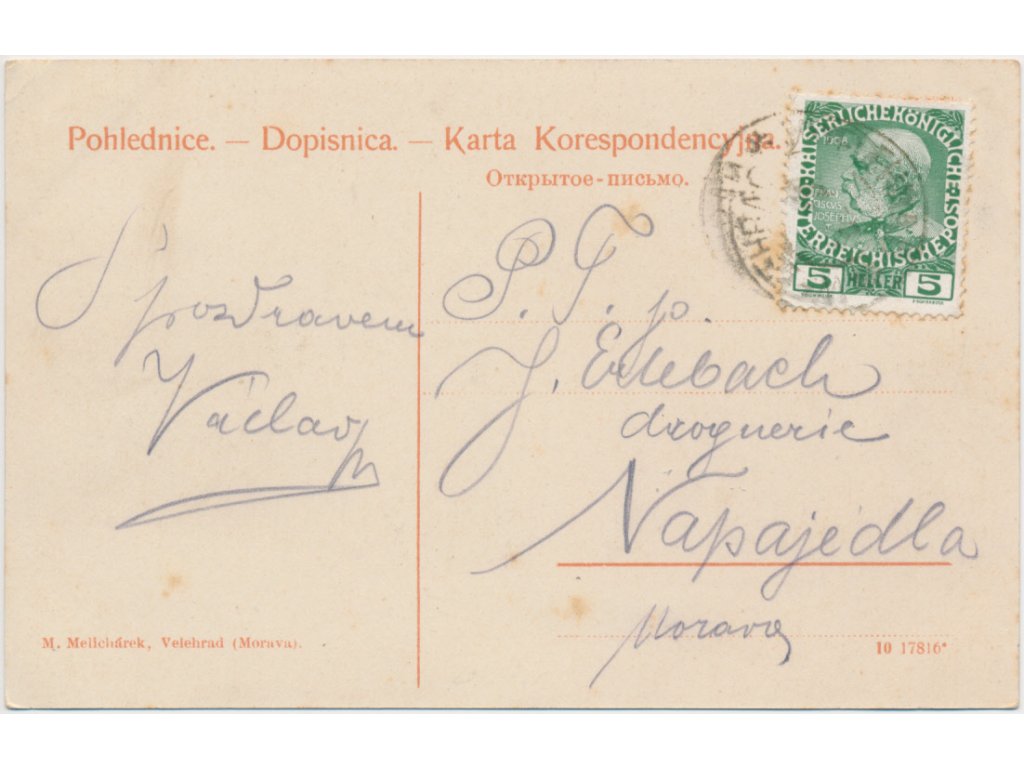 Pohlednice. — Dopisnica. — Karta Korespondencyjna.
Открытое-письмо.
S pozdravem
Václav
P. T. p.
J. Erlebach
droguerie
Napajedla
Morava
M. Melichárek, Velehrad (Morava).
10 17816*
KAISERLICHE KÖNIGLICHE ÖSTERREICHISCHE POST
1908
JOSEPHUS
5 HELLER 5